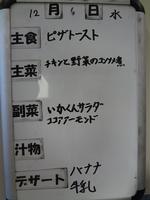 12月6日水
主食 ピザトースト
主菜 チキンと野菜のコンソメ煮
副菜 いかくんサラダ
ココアアーモンド
汁物
デザート バナナ
牛乳